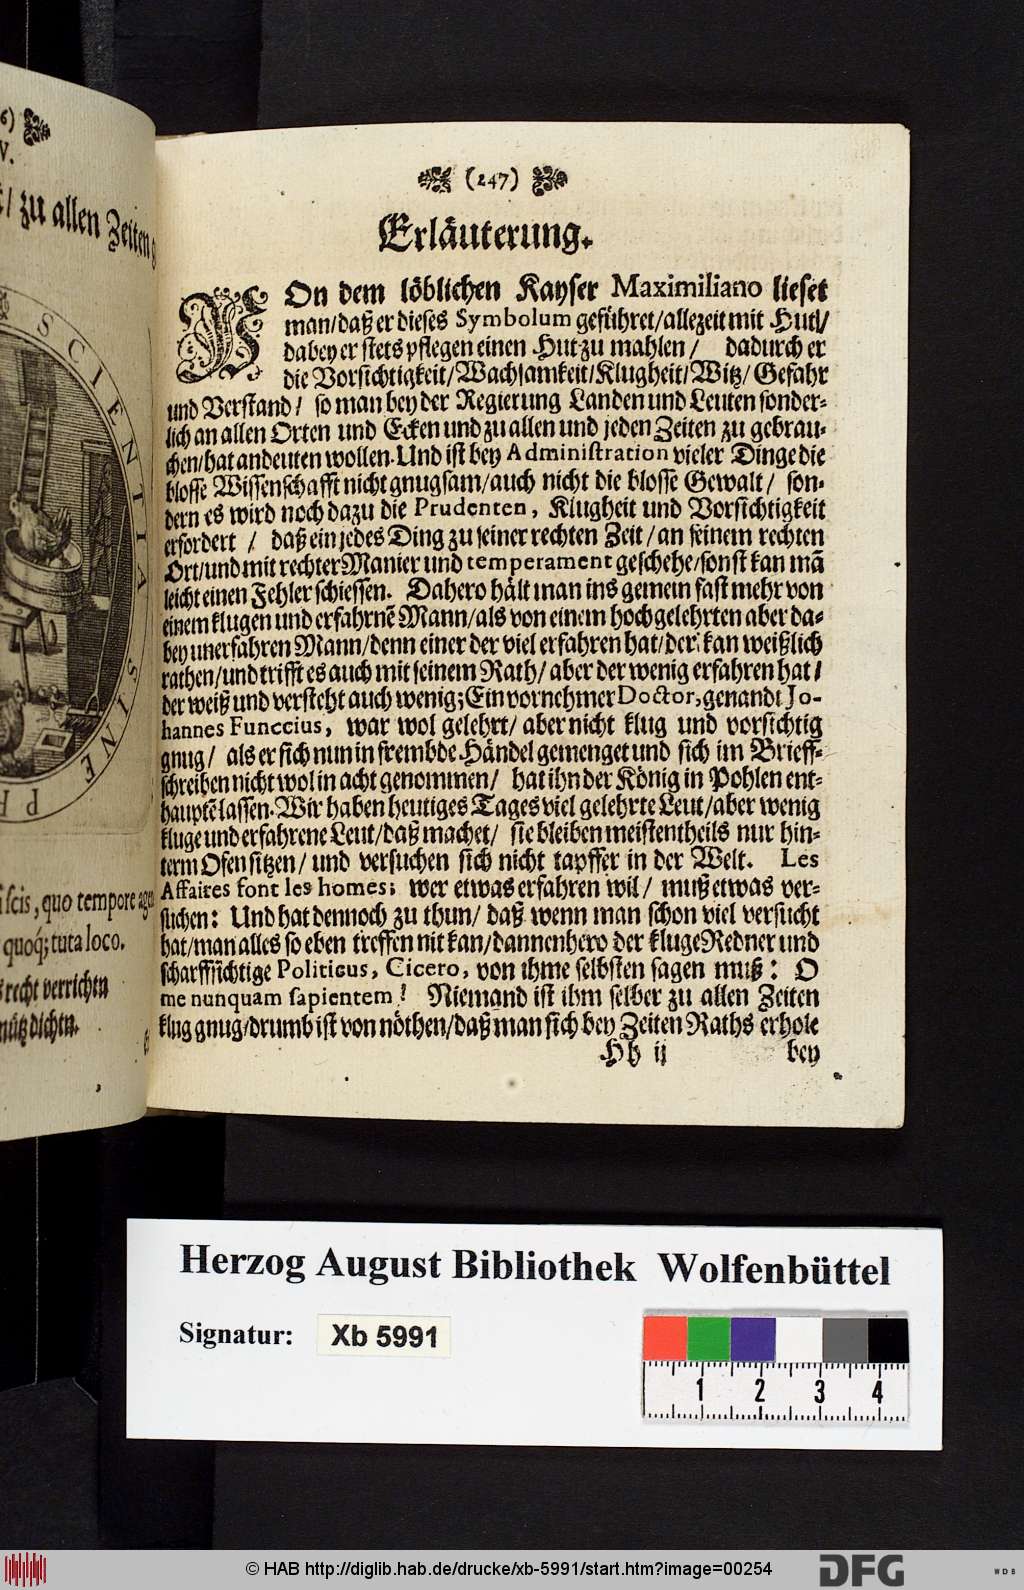 6)
V.
/ zu allen Zeiten
SCIENTIA SINE
scis, quo tempore agen
quoq́; tuta loco.
recht verrichtn
nütz dichtn.
(247)
Erläuterung.
VOn dem löblichen Kayser Maximiliano lieset
man/daß er dieses Symbolum geführet/allezeit mit Hutl/
dabey er stets pflegen einen Hut zu mahlen/ dadurch er
die Vorsichtigkeit/Wachsamkeit/Klugheit/Witz/Gefahr
und Verstand/ so man bey der Regierung Landen und Leuten sonder-
lich an allen Orten und Ecken und zu allen und jeden Zeiten zu gebrau-
chen/hat andeuten wollen. Und ist bey Administration vieler Dinge die
blosse Wissenschafft nicht gnugsam/auch nicht die blosse Gewalt/ son-
dern es wird noch dazu die Prudenten, Klugheit und Vorsichtigkeit
erfordert / daß ein jedes Ding zu seiner rechten Zeit/an seinem rechten
Ort/und mit rechter Manier und temperament geschehe/sonst kan mā
leicht einen Fehler schiessen. Dahero hält man ins gemein fast mehr von
einem klugen und erfahrnē Mann/als von einem hochgelehrten aber da-
bey unerfahren Mann/denn einer der viel erfahren hat/der kan weißlich
rathen/und trifft es auch mit seinem Rath/aber der wenig erfahren hat/
der weiß und versteht auch wenig; Ein vornehmer Doctor, genandt Jo-
hannes Funccius, war wol gelehrt/ aber nicht klug und vorsichtig
gnug/ als er sich nun in frembde Händel gemenget und sich im Brieff-
schreiben nicht wol in acht genommen/ hat ihn der König in Pohlen ent-
hauptē lassen. Wir haben heutiges Tages viel gelehrte Leut/aber wenig
kluge und erfahrene Leut/daß machet/ sie bleiben meistentheils nur hin-
term Ofen sitzen/ und versuchen sich nicht tapffer in der Welt. Les
Affaires font les homes; wer etwas erfahren wil/ muß etwas ver-
suchen: Und hat dennoch zu thun/ daß wenn man schon viel versucht
hat/man alles so eben treffen nit kan/dannenhero der kluge Redner und
scharffsichtige Politicus, Cicero, von ihme selbsten sagen muß: O
me nunquam sapientem! Niemand ist ihm selber zu allen Zeiten
klug gnug/drumb ist von nöthen/daß man sich bey Zeiten Raths erhole
Hh ij bey
Herzog August Bibliothek Wolfenbüttel
Signatur: Xb 5991
1 2 3 4
© HAB http://diglib.hab.de/drucke/xb-5991/start.htm?image=00254
DFG
WDB